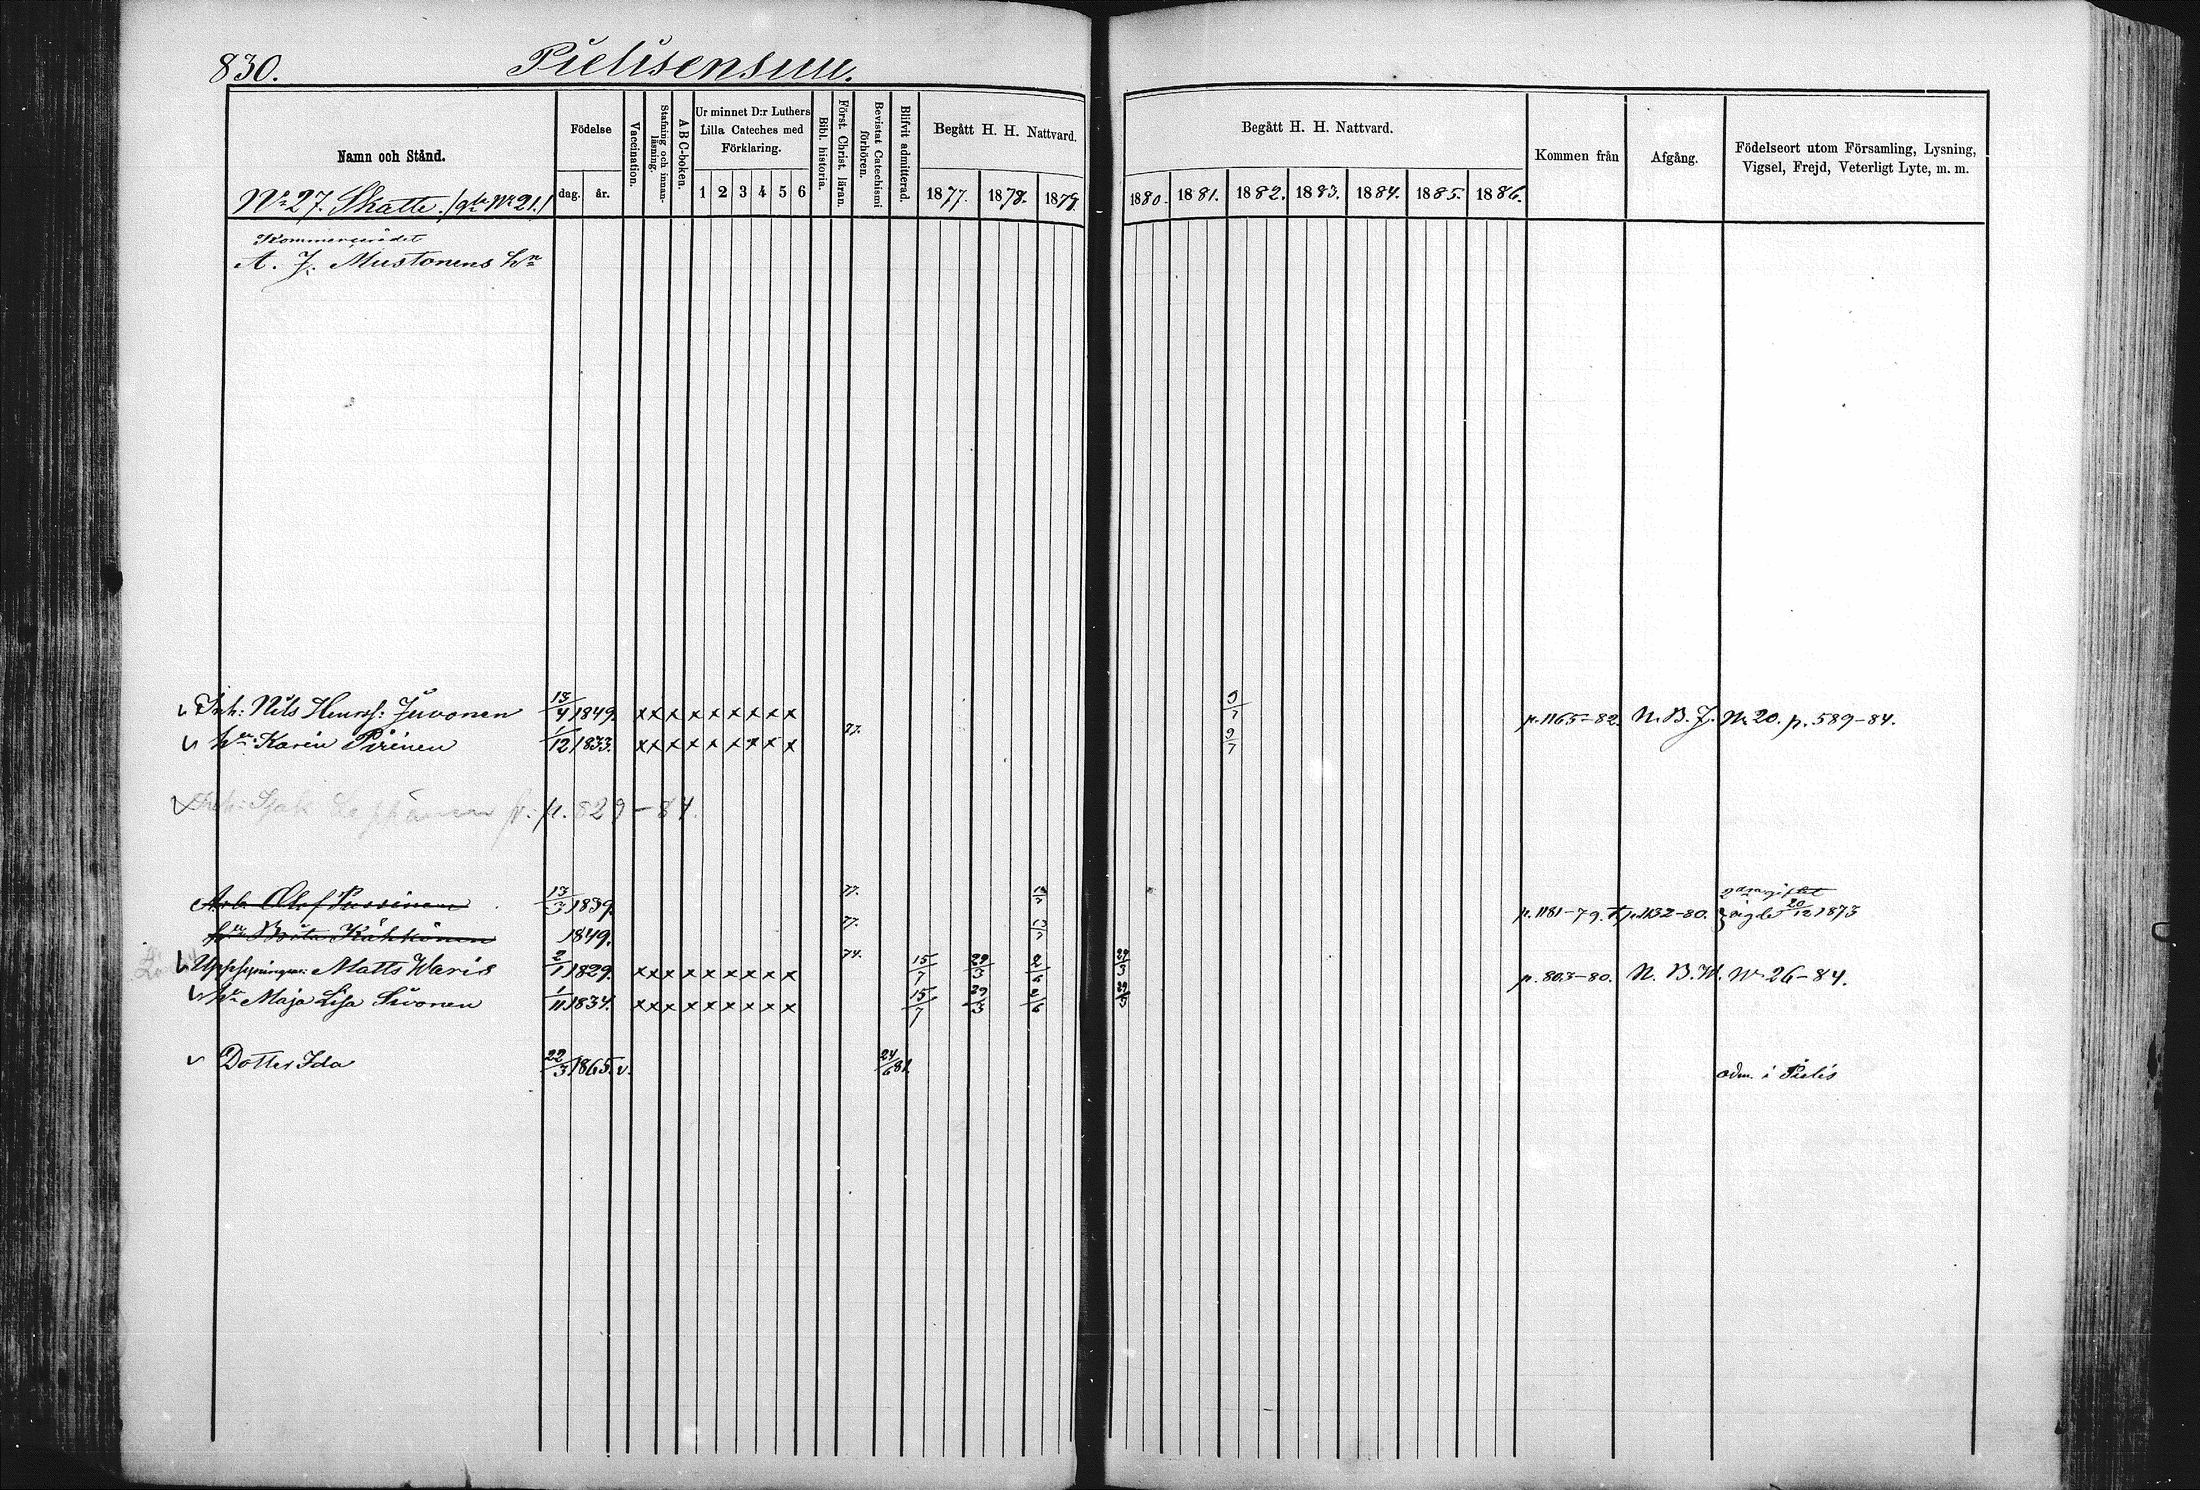 830. Pielisensuu.
Namn och Stånd.
Födelse
dag. år.
Vaccination.
Stafning och innan-läsning.
A B C-boken.
Ur minnet D:r Luthers
Lilla Cateches med
Förklaring.
1 2 3 4 5 6
Bibl. historia.
Först. Christ. läran.
Bevistat Catechismi förhören.
Blifvit admitterad.
Begått H. H. Nattvard.
1877. 1878. 1879.
Begått H. H. Nattvard.
1880. 1881. 1882. 1883. 1884. 1885. 1886.
Kommen från
Afgång.
Födelseort utom Församling, Lysning,
Vigsel, Frejd, Veterligt Lyte, m. m.
No 27. Skatte.
Kommerserådet
A. J. Mustonens
Inh: Nils Henrsf: Juvonen 13/4 1849. x x x x x x x x x 9/7 p. 1165-82. N. B. J. No 20. p. 589-84.
Karin Piiinen 1/12 1833. x x x x x x x x x 77. 9/7
p. 829-84.
Arb. Olof 13/3 1839. 77. 13/7 p. 1181-79. p. 1132-80. 20/12 1873
Kähkönen 1849. 77. 13/7
Matts Waris 2/1 1829. x x x x x x x x x 74. 15/7 29/3 2/6 29/3 p. 803-80. N. B. No 26-84.
Maja Lisa 1/11 1834. x x x x x x x x x 15/7 29/3 2/6 29/3
Dotter Ida 22/3 1865. v. 24/6 81. adm. i Pielis